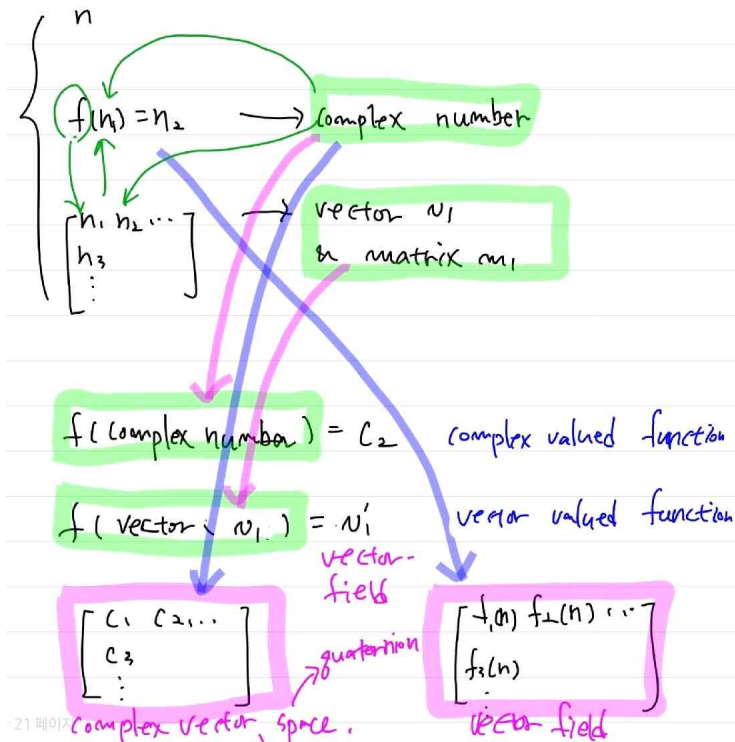 n
f(n₁) = n₂ → complex number
[n₁ n₂ ... → vector v₁
n₃ & matrix m₁
⋮ ]
f(complex number) = C₂ complex valued function
f(vector v₁) = v₁' vector valued function
vector-
field
[C₁ C₂,... [f₁(n) f₂(n) ...
C₃ quaternion f₃(n)
⋮ ] ⋮ ]
21 페이지 complex vector space. vector field